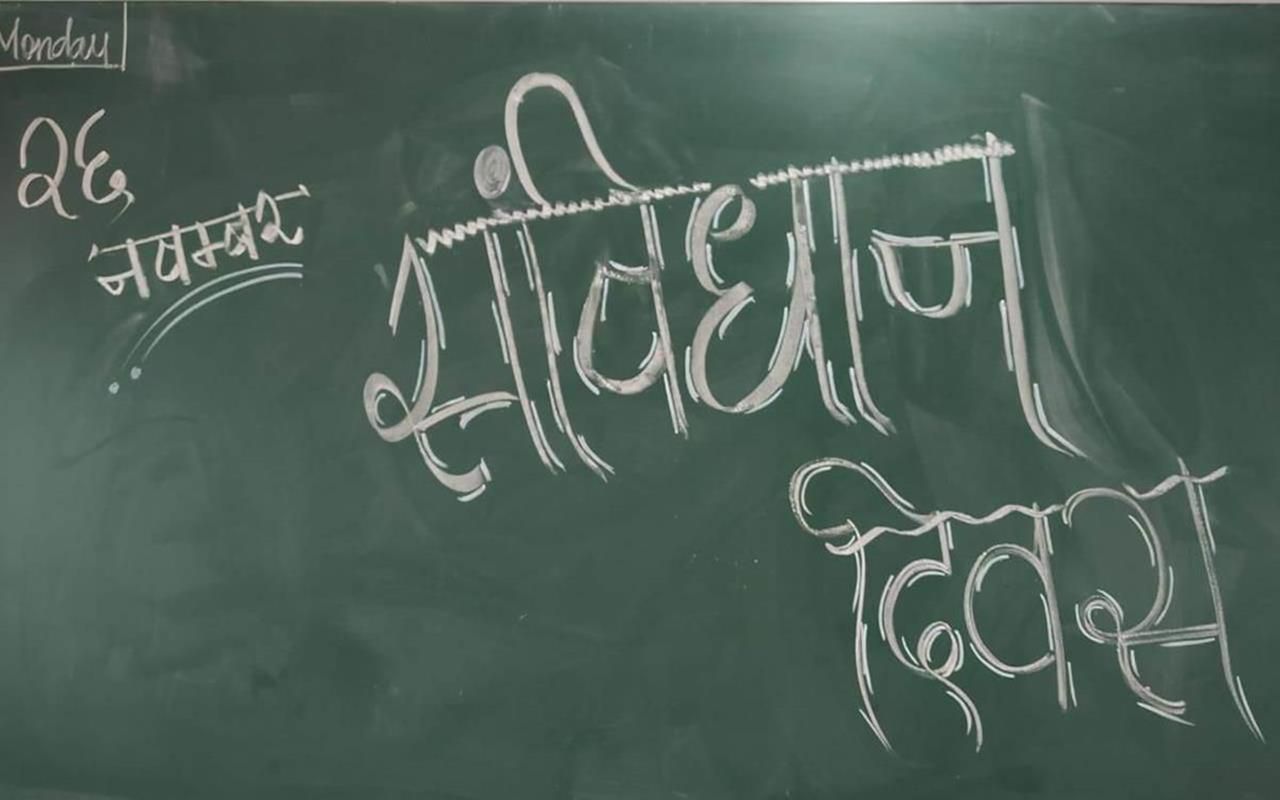 Monday
२६
नवम्बर
संविधान
दिवस